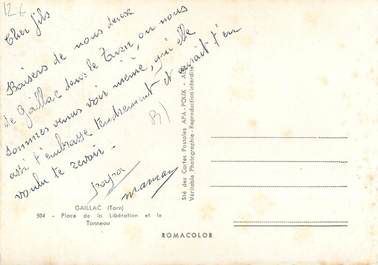 126
Cher fils
Baisers de nous deux
de Gaillac dans le Tarn, ou nous
sommes venus voir mémé, qui elle
aussi t'embrasse tendrement et aurait t'en
voulu te revoir.
papa
maman
GAILLAC (Tarn)
504 - Place de la Libération et le
Tonneau
Sté des Cartes Postales APA-POUX -
Véritable Photographie - Reproduction interdite
ROMACOLOR